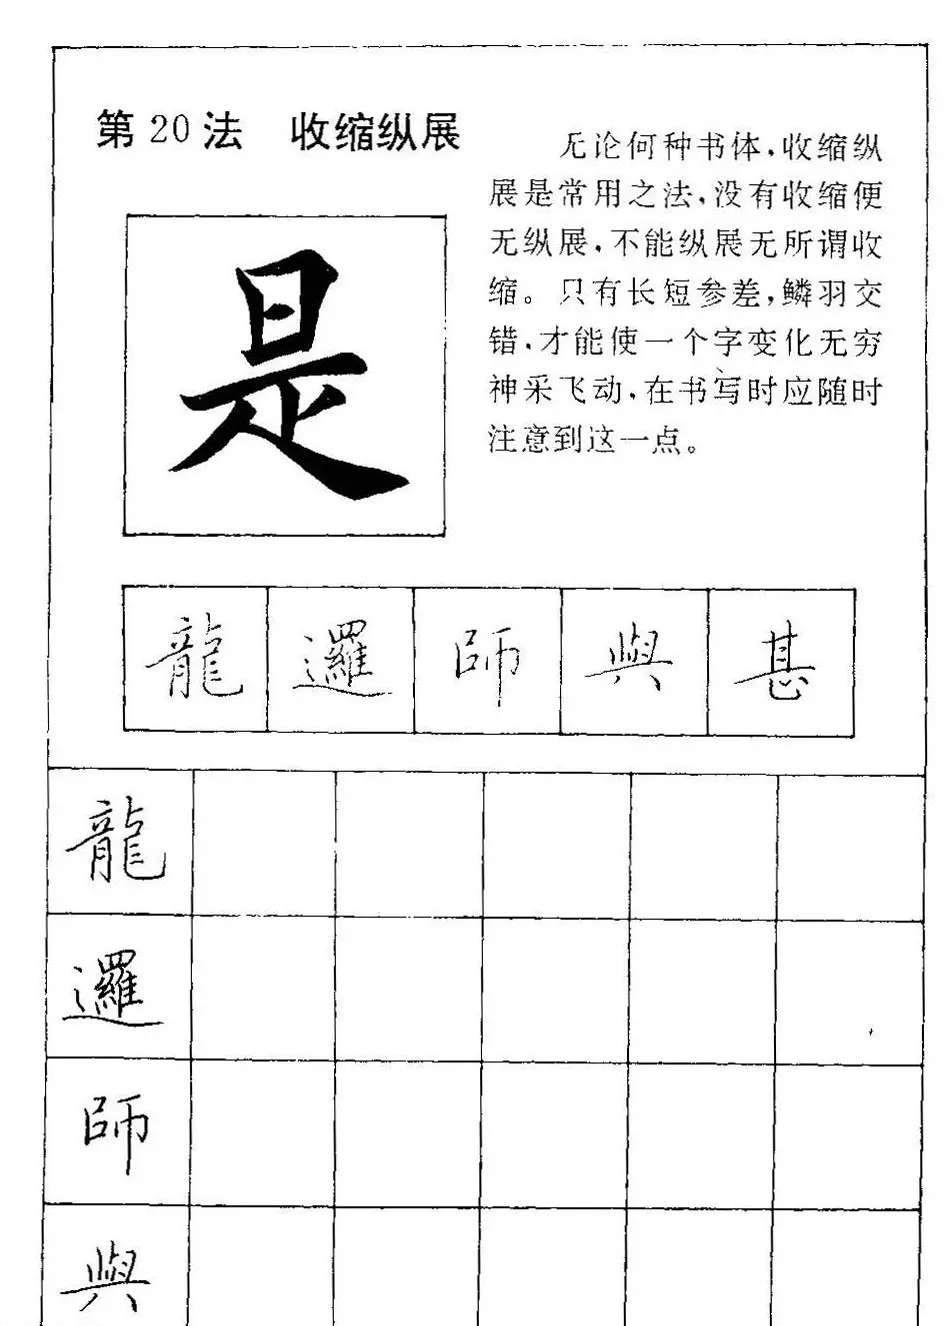 第20法 收缩纵展
无论何种书体,收缩纵
展是常用之法,没有收缩便
无纵展,不能纵展无所谓收
缩。只有长短参差,鳞羽交
错,才能使一个字变化无穷
神采飞动,在书写时应随时
注意到这一点。
是
龍 邏 師 與 甚
龍
邏
師
與